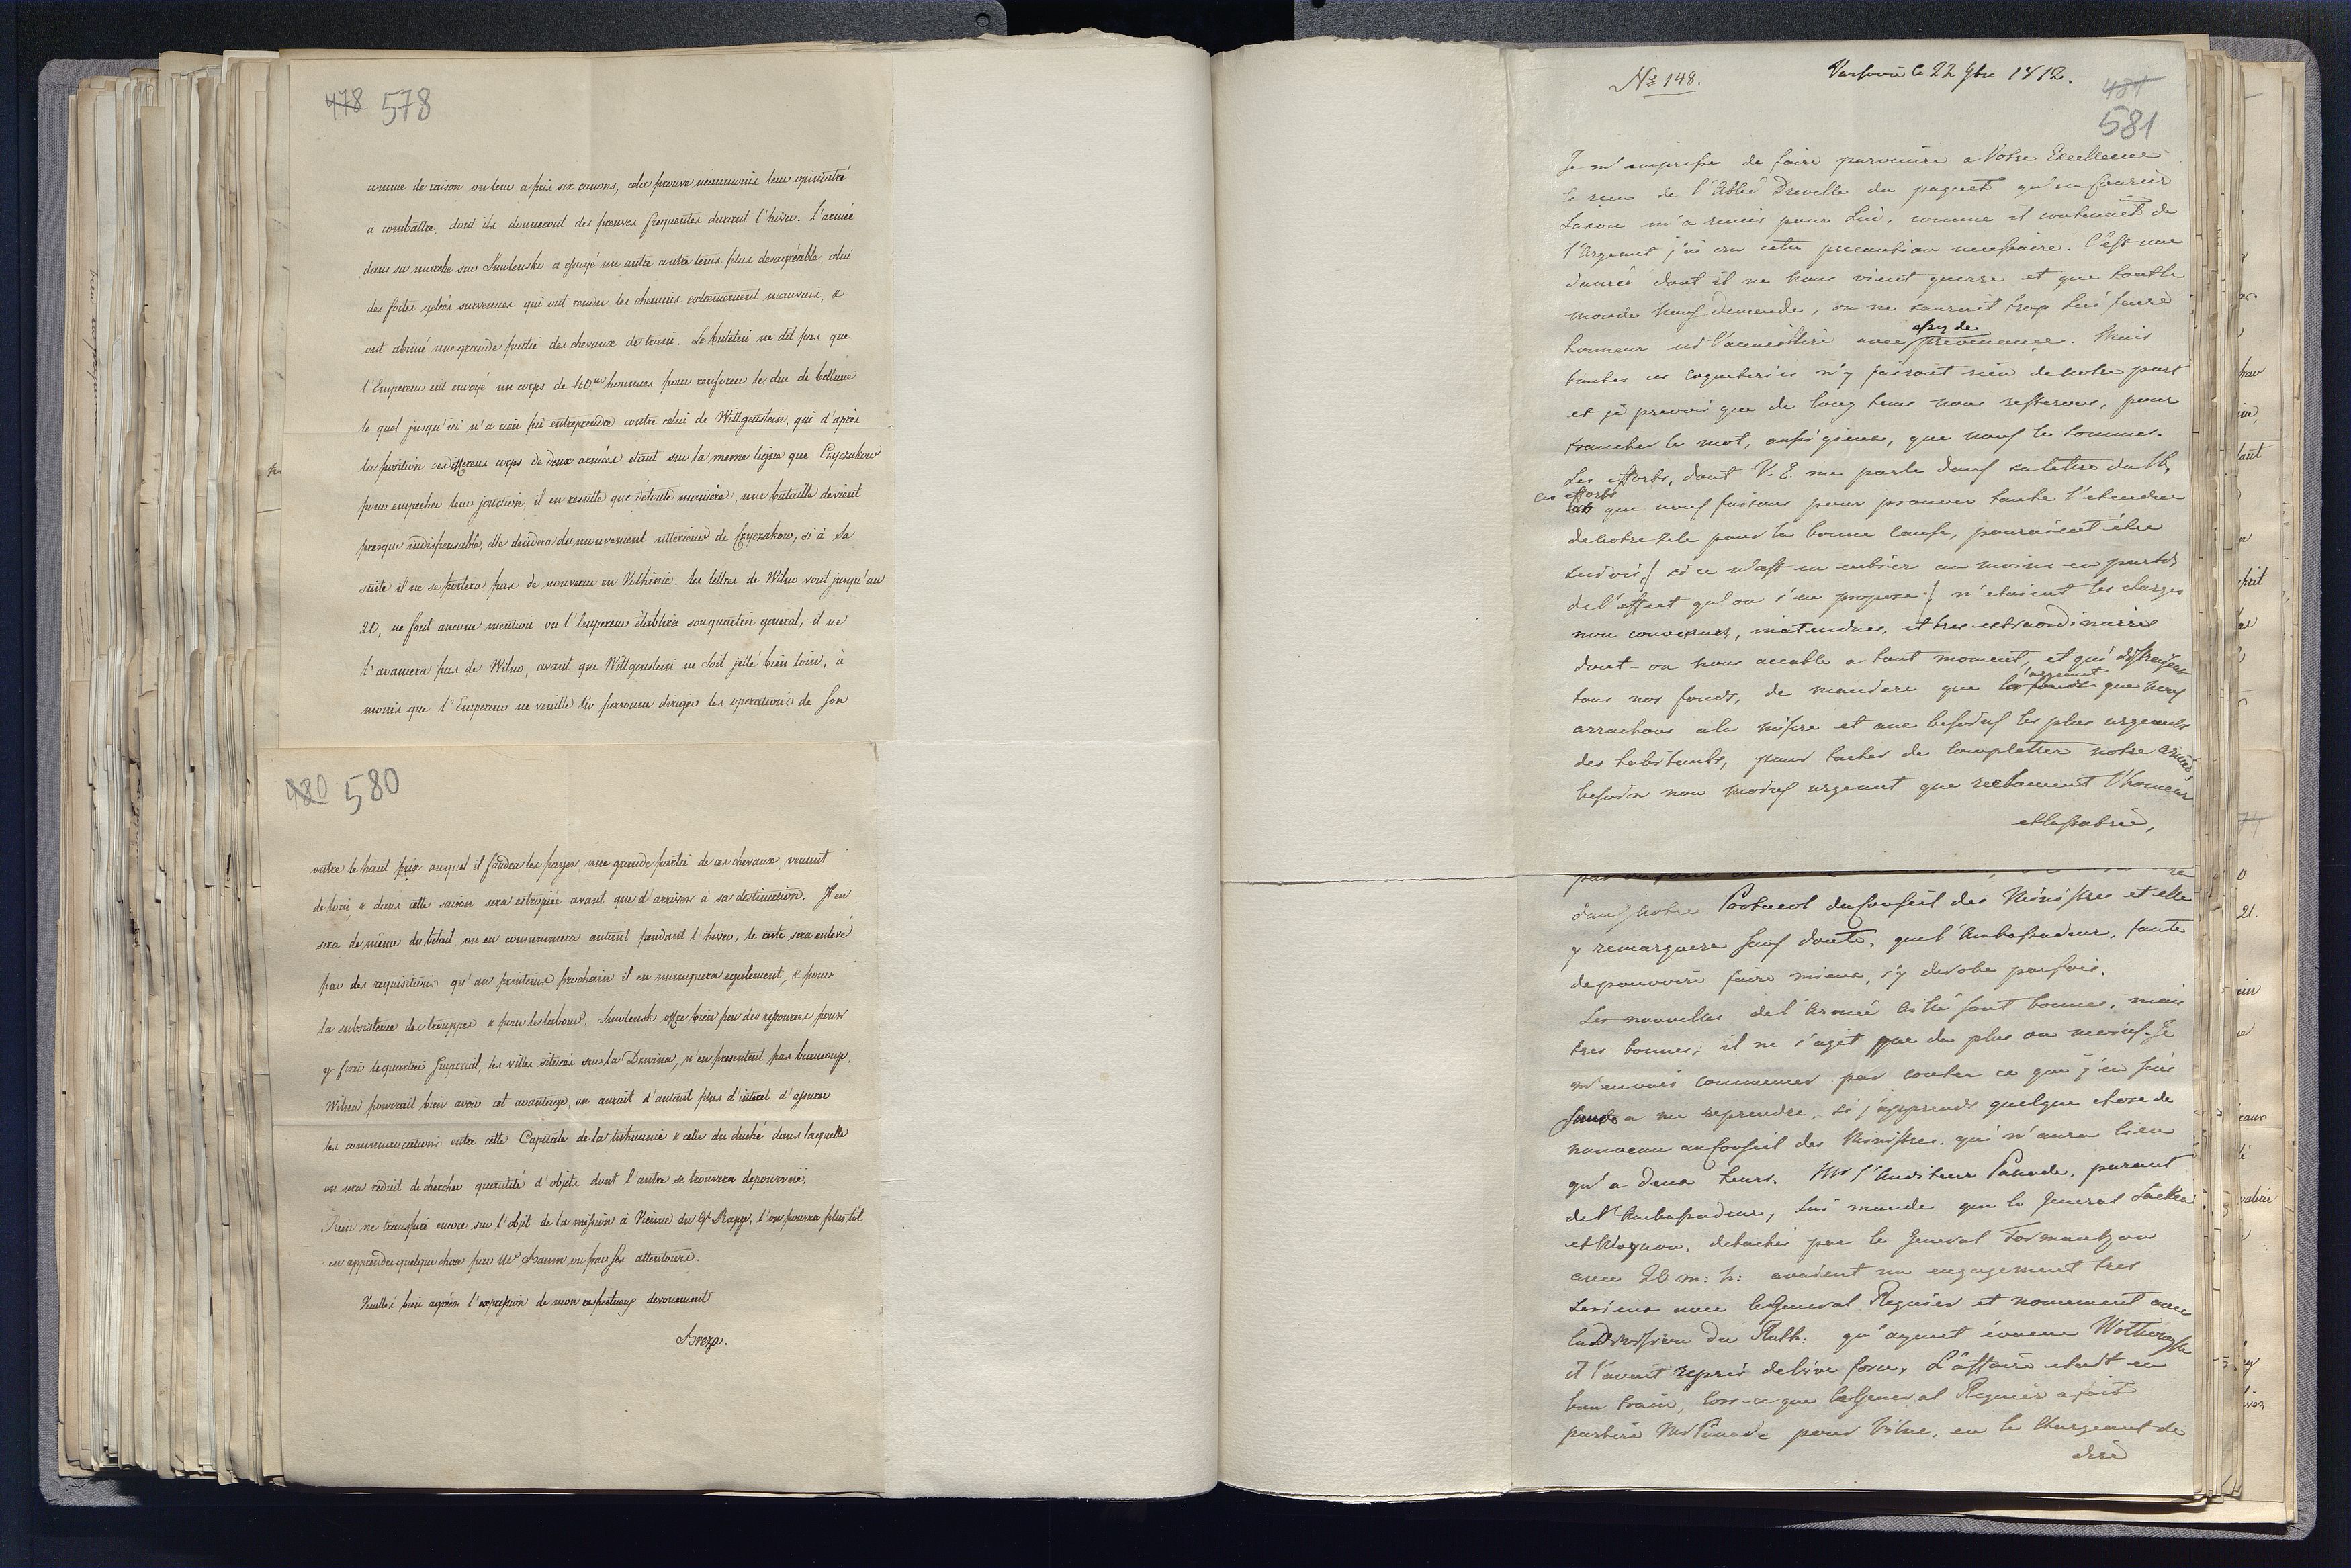 478 578
comme de raison on leur a pris six canons, cela prouve neanmoins leur opiniatré
à combattre, dont ils donneront des preuves frequentes durant l'hiver. L'armée
dans sa marche sur Smolensko a essuyé un autre contre tems plus desagréable, celui
des fortes gelées survenues qui ont rendu les chemins extremement mauvais, &
ont abimé une grande partie des chevaux de train. Le buletin ne dit pas que
l'Empereur eut envoyé un corps de 40m hommes pour renforcer le duc de bellune
le quel jusqu'ici n'a rien pu entreprendre contre celui de Wittgenstein, qui d'après
la position des differens corps de deux armées etant sur la meme ligne que Czyczakow
pour empecher leur jonction, il en resulte que de toute maniere, une bataille devient
presque indispensable, elle decidera du mouvement ulterieur de Czyczakow, si à sa
suite il ne se portera pas de nouveau en Volhinie. les lettres de Wilno vont jusqu'au
20, ne font aucune mention ou l'Empereur établira son quartier general, il ne
s'avancera pas de Wilno, avant que Wittgenstein ne soit jetté bien loin, à
moins que l'Empereur ne veuille en personne diriger les operations de son
480 580
outre le haut prix auquel il faudra les payer, une grande partie de ces chevaux, venant
de loin, & dans cette saison sera estropiée avant que d'arriver à sa destination. Il en
sera de même du bétail, on en consommera autant pendant l'hiver, le reste sera enlevé
par des requisitions qu'au printems prochain il en manquera egalement, & pour
la subsistence des trouppes & pour le labour. Smolensk offre bien peu des ressources pour
y fixer le quartier Imperial, les villes situées sur la Dzwina, n'en presentent pas beaucoup,
Wilna pourrait bien avoir cet avantage, on aurait d'autant plus d'interet d'assurer
les communications entre cette Capitale de la Lithuanie & celle du duché dans laquelle
on sera reduit de chercher quantité d'objets dont l'autre se trouvera depourvue.
Rien ne transpire encore sur l'objet de la mission à Vienne du Gl Rapp, l'on pourra plus tôt
en apprendre quelque chose par Mr Baum ou par ses attentours.
Veuillez bien agréer l'expression de mon respectueux devouement
Breza.
No 148.
Varsovie le 22 9bre 1812.
481
581
Je m'empresse de faire parvenir a Votre Excellence
le recu de l'Abbé Drevelle du paquet qu'un Courier
Saxon m'a remis pour Lui, comme il contenait de
l'Argeant j'ai cru cette precaution necessaire. C'est une
danrée dont il ne nous vient guerre et que tout le
monde nous demande, on ne sauroit trop lui faire
honneur ni l'accueillire avec assez de prevenance. Mais
toutes ces coqueteries n'y faisant rien de notre part
et je prevois que de long tems nous resterons, pour
trancher le mot, aussi gueux, que nous le sommes.
Les efforts, dont V. E. me parle dans sa lettre du 16,
ces efforts
que nous faisons pour prouver toute l'etendue
de notre zele pour la bonne cause, pouraient être
suivis, / si ce n'est en entier au moins en partie
de l'effet qu'on s'en propose / n'etaient les charges
non convenues, inatendues, et tres extraordinaires
dont-on nous accable a tout moment, et qui
tous nos fonds, de maniere que l'argeant que nous
arrachons a la misere et aux besoins les plus urgeants
des habitants, pour tacher de completter notre armée,
besoin non moins urgeant que reclament l'honneur
et la patrie,
dans notre Protocol du Conseil des Ministres et elle
y remarquera sans doute, que l'Ambassadeur, faute
de pouvoir faire mieux, s'y derobe parfois.
Les nouvelles de l'Armée
sont bonnes, mais
tres bonnes; il ne s'agit que du plus ou moins. Je
m'en vais commencer par conter ce que j'en sais
sauf a me reprendre, si j'apprends quelque chose de
nouveau au Conseil des Ministres. qui n'aura lieu
qu'a deux heurs. Mr l'Auditeur Panade, parent
de l'Ambassadeur, lui mande que le General Sacken
et
detachés par le General Tormantzow
avec 26 m: h: avoient un engagement tres
serieux avec le General Regnier et nomement avec
la Division du Rutt: qu'ayant évacué Wolkowysk
il l'avoit repris de vive force, L'affaire etoit en
bon train, lors-ce que le General Regnier a fait
partire Mr Panade pour Vilna, en le Chargeant de
dire